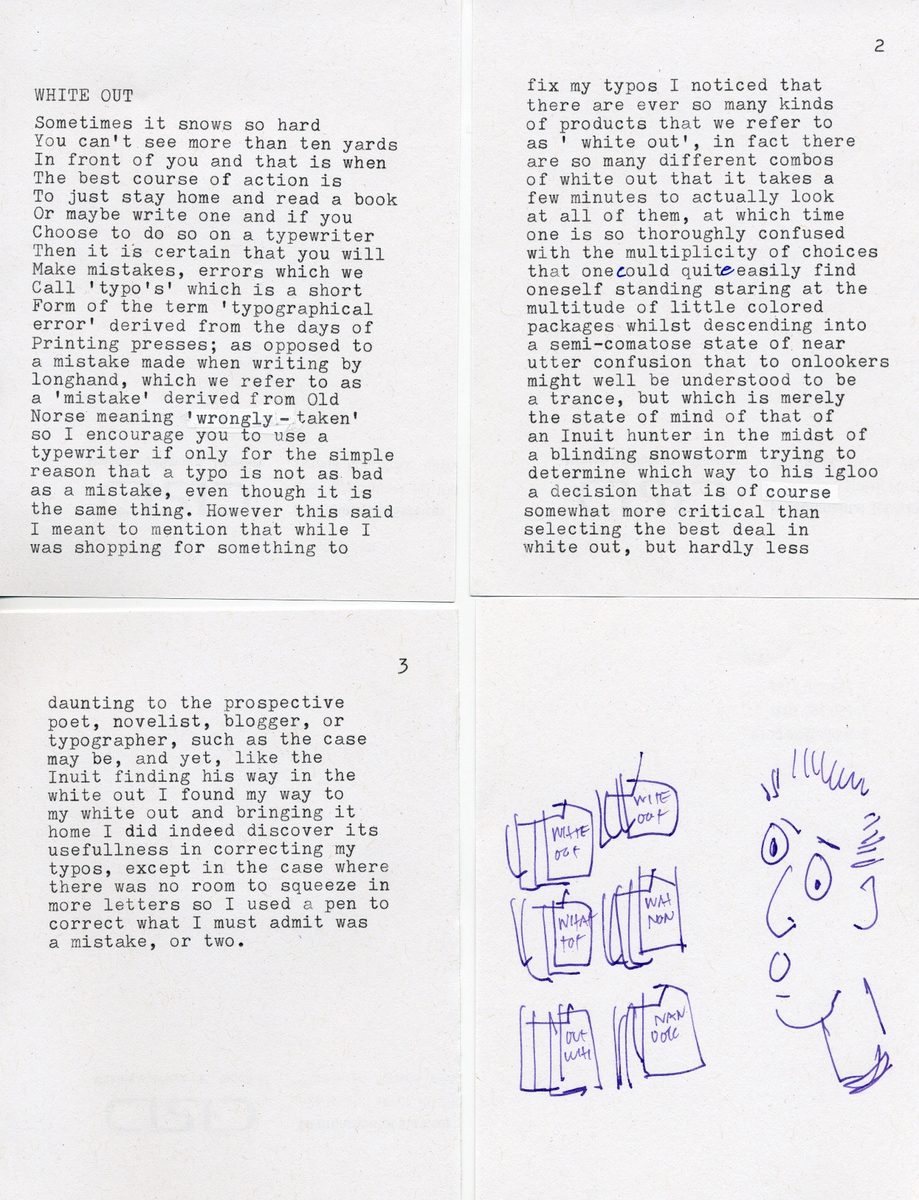 WHITE OUT
Sometimes it snows so hard
You can't see more than ten yards
In front of you and that is when
The best course of action is
To just stay home and read a book
Or maybe write one and if you
Choose to do so on a typewriter
Then it is certain that you will
Make mistakes, errors which we
Call 'typo's' which is a short
Form of the term 'typographical
error' derived from the days of
Printing presses; as opposed to
a mistake made when writing by
longhand, which we refer to as
a 'mistake' derived from Old
Norse meaning 'wrongly-taken'
so I encourage you to use a
typewriter if only for the simple
reason that a typo is not as bad
as a mistake, even though it is
the same thing. However this said
I meant to mention that while I
was shopping for something to
2
fix my typos I noticed that
there are ever so many kinds
of products that we refer to
as ' white out', in fact there
are so many different combos
of white out that it takes a
few minutes to actually look
at all of them, at which time
one is so thoroughly confused
with the multiplicity of choices
that one could quite easily find
oneself standing staring at the
multitude of little colored
packages whilst descending into
a semi-comatose state of near
utter confusion that to onlookers
might well be understood to be
a trance, but which is merely
the state of mind of that of
an Inuit hunter in the midst of
a blinding snowstorm trying to
determine which way to his igloo
a decision that is of course
somewhat more critical than
selecting the best deal in
white out, but hardly less
3
daunting to the prospective
poet, novelist, blogger, or
typographer, such as the case
may be, and yet, like the
Inuit finding his way in the
white out I found my way to
my white out and bringing it
home I did indeed discover its
usefullness in correcting my
typos, except in the case where
there was no room to squeeze in
more letters so I used a pen to
correct what I must admit was
a mistake, or two.
WITE
OUT
WHITE
OUT
WHAT
TOT
WAT
NON
OUT
WHI
NAN